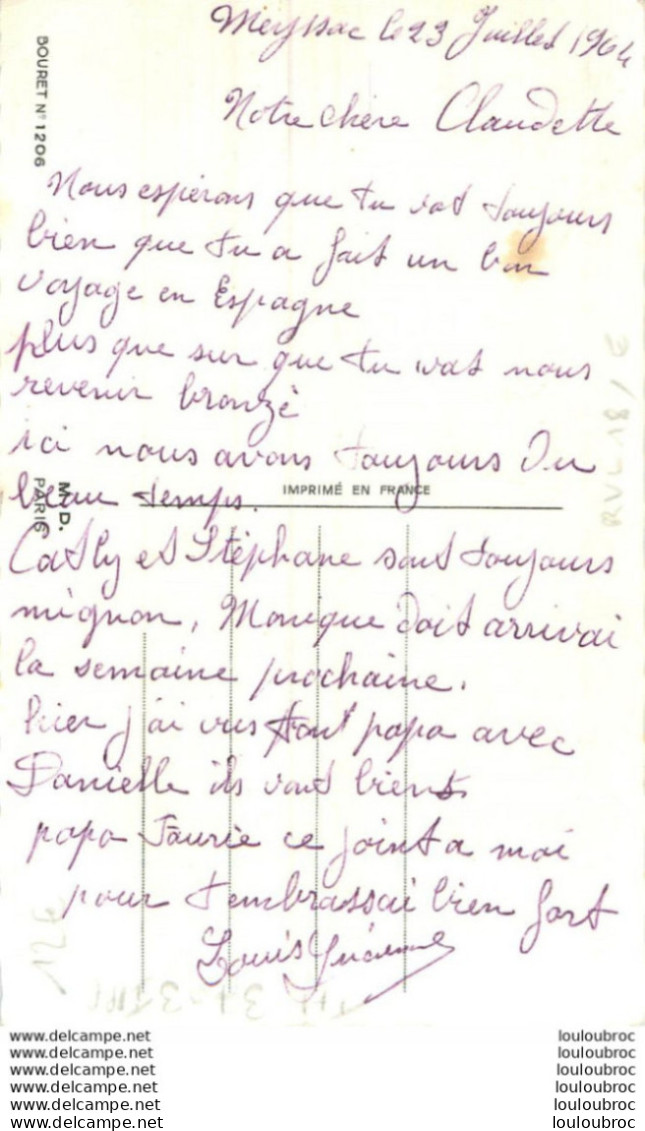 Meyssac le 23 Juillet 1964
Notre chère Claudette
Nous espérons que tu vat toujours
bien que tu a fait un bon
voyage en Espagne
plus que sur que tu vat nous
revenir bronzé
ici nous avons toujours Du
beau temps.
Cathy et Stéphane sont toujours
mignon, Monique doit arrivai
la semaine prochaine.
hier j'ai vus tont papa avec
Danielle ils vont biens
papa Faurie ce joint a moi
pour t'embrassai bien fort
Louis
BOURET N° 1206
M.D.
PARIS
IMPRIMÉ EN FRANCE
www.delcampe.net
www.delcampe.net
www.delcampe.net
www.delcampe.net
www.delcampe.net
www.delcampe.net
louloubroc
louloubroc
louloubroc
louloubroc
louloubroc
louloubroc